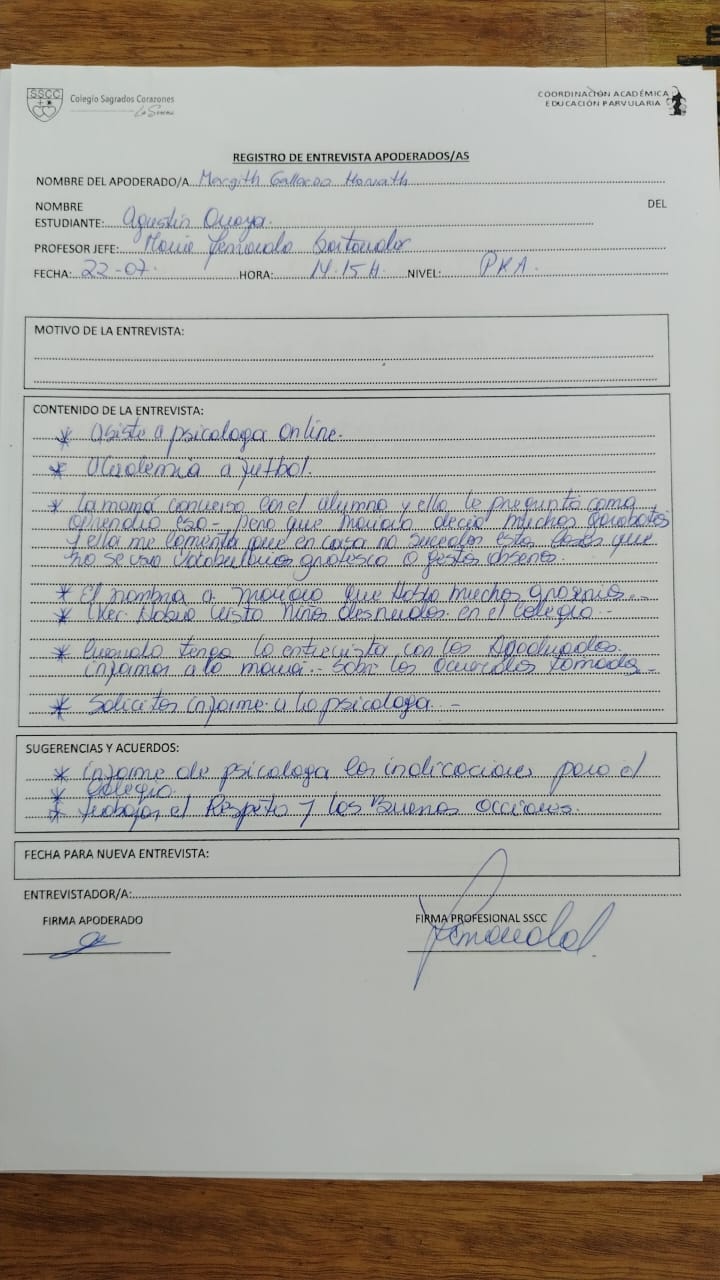 SSCC
Colegio Sagrados Corazones
La Serena
COORDINACIÓN ACADÉMICA
EDUCACIÓN PARVULARIA
REGISTRO DE ENTREVISTA APODERADOS/AS
NOMBRE DEL APODERADO/A Margith Gallardo Horvath
NOMBRE DEL
ESTUDIANTE: Agustín Onoya.
PROFESOR JEFE: María Fernanda Santander
FECHA: 22-07. HORA: 14:15 H. NIVEL: PKA.
MOTIVO DE LA ENTREVISTA:
CONTENIDO DE LA ENTREVISTA:
* Asiste a psicologa online.
* Academia a futbol.
* La mamá converso con el alumno y ella le pregunta como
aprendio eso - pero que decia muchos garabatos
y ella me comenta que en casa no suceden estas cosas que
no se usa vocabularios grotesco o gestos obsenos.
* El nombra a que habla muchos groserias.
* Iker Habia visto niños desnudos en el colegio.-
* Cuando tenga la entrevista con los Apoderados.
informar a la mamá.- sobre los acuerdos tomados -
* Solicitos informe a la psicologa. -
SUGERENCIAS Y ACUERDOS:
* Informe de psicologa las indicaciones para el
* Colegio.
* Trabajar el Respeto y las Buenas acciones.
FECHA PARA NUEVA ENTREVISTA:
ENTREVISTADOR/A:
FIRMA APODERADO
FIRMA PROFESIONAL SSCC